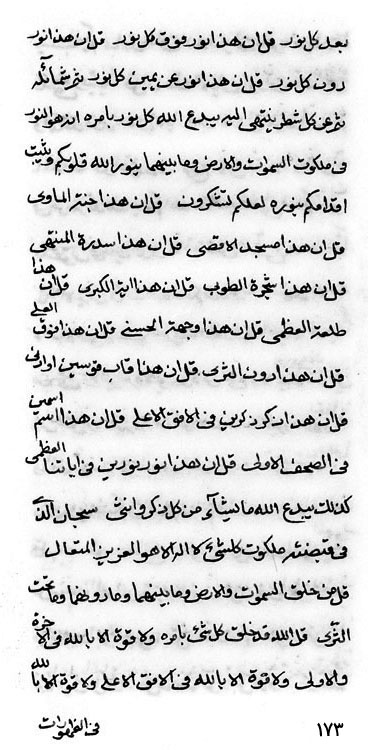 بعد كل نور قل ان هذا نور فوق كل نور قل ان هذا نور
دون كل نور قل ان هذا نور عن يمين كل نور ثم شمائله
ثم عن كل شطر ينتهى اليه يبدع الله كل نور بامره انه هو النور
فى ملكوت السموات والارض وما بينهما ينور الله قلوبكم ويثبت
اقدامكم بنوره لعلكم تشكرون قل ان هذا جنة الماوى
قل ان هذا مسجد الاقصى قل ان هذا سدرة المنتهى
قل ان هذا شجرة الطوبى قل ان هذا اية الكبرى قل ان هذا
طلعة العظمى قل ان هذا وجهة الحسنى قل ان هذا فوق العلى
قل ان هذا دون الثرى قل ان هذا قاب قوسين او ادنى
قل ان هذا ذكرين فى الافق الاعلى قل ان هذا اسم اسمين
فى الصحف الاولى قل ان هذا نور نورين فى اياتنا العظمى
كذلك يبدع الله ما يشاء من كل ذكر وانثى سبحان الذى
فى قبضته ملكوت كلشئ لا اله الا هو العزيز المتعال
قل من خلق السموات والارض وما بينهما وما دونهما وما تحت
الثرى قل الله قد خلق كل شئ بامره ولا قوة الا بالله فى الاخرة
والاولى ولا قوة الا بالله فى الافق الاعلى ولا قوة الا بالله
فى الظهورات
١٧٣